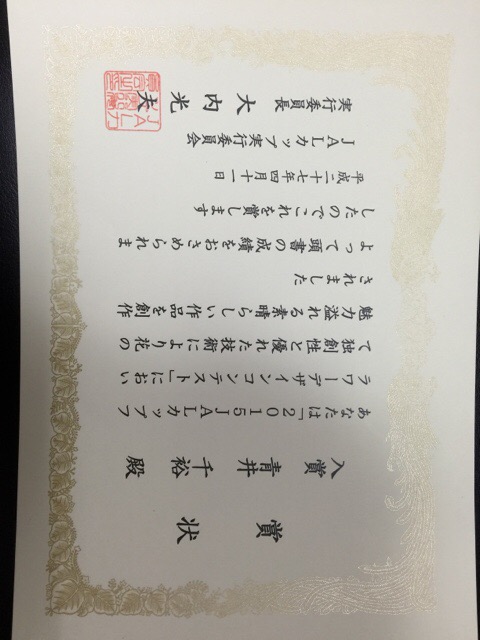 賞状
入賞 青井 千裕 殿
あなたは「2015JALカップフ
ラワーデザインコンテスト」におい
て独創性と優れた技術により花の
魅力溢れる素晴しい作品を創作
されました
よって頭書の成績をおさめられま
したのでこれを賞します
平成二十七年四月十一日
JALカップ実行委員会
実行委員長 大内光夫